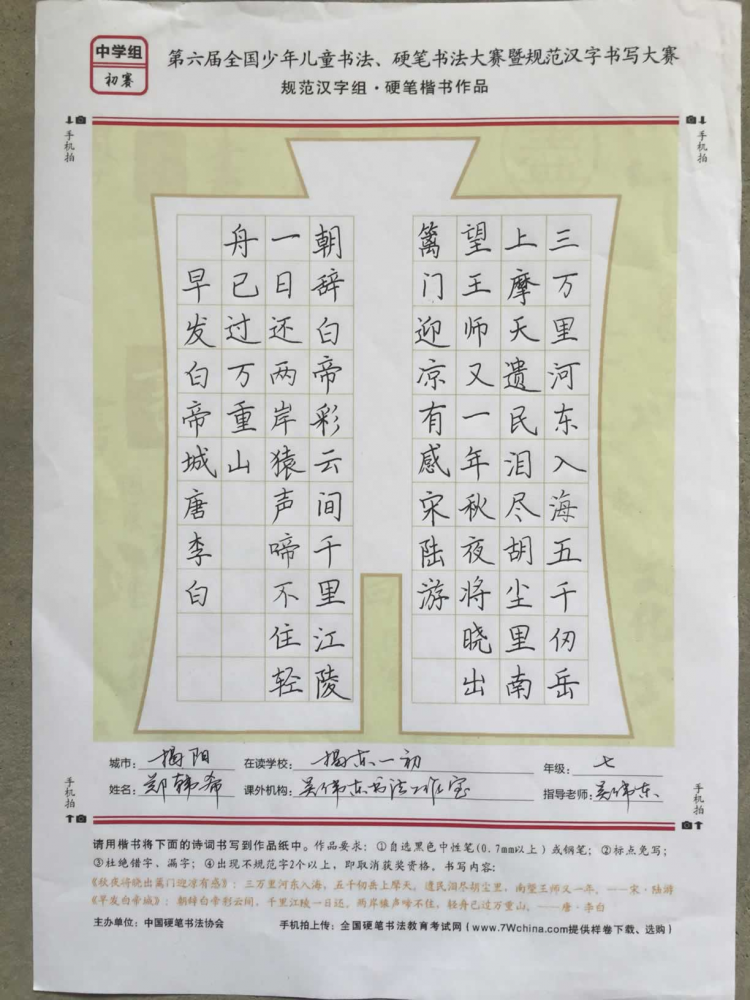 中学组
初赛
第六届全国少年儿童书法、硬笔书法大赛暨规范汉字书写大赛
规范汉字组·硬笔楷书作品
手机拍
手机拍
三万里河东入海五千仞岳
上摩天遗民泪尽胡尘里南
望王师又一年秋夜将晓出
篱门迎凉有感宋陆游
朝辞白帝彩云间千里江陵
一日还两岸猿声啼不住轻
舟已过万重山
早发白帝城唐李白
城市：揭阳 在读学校：揭东一初 年级：七
姓名：郑韩希 课外机构：吴伟东书法工作室 指导老师：吴伟东
手机拍
手机拍
请用楷书将下面的诗词书写到作品纸中。作品要求：①自选黑色中性笔(0.7mm以上)或钢笔；②标点免写；
③杜绝错字、漏字；④出现不规范字2个以上，即取消获奖资格。书写内容：
《秋夜将晓出篱门迎凉有感》：三万里河东入海，五千仞岳上摩天。遗民泪尽胡尘里，南望王师又一年。——宋·陆游
《早发白帝城》：朝辞白帝彩云间，千里江陵一日还。两岸猿声啼不住，轻舟已过万重山。——唐·李白
主办单位：中国硬笔书法协会 手机拍上传：全国硬笔书法教育考试网（www.7Wchina.com提供样卷下载、选购）